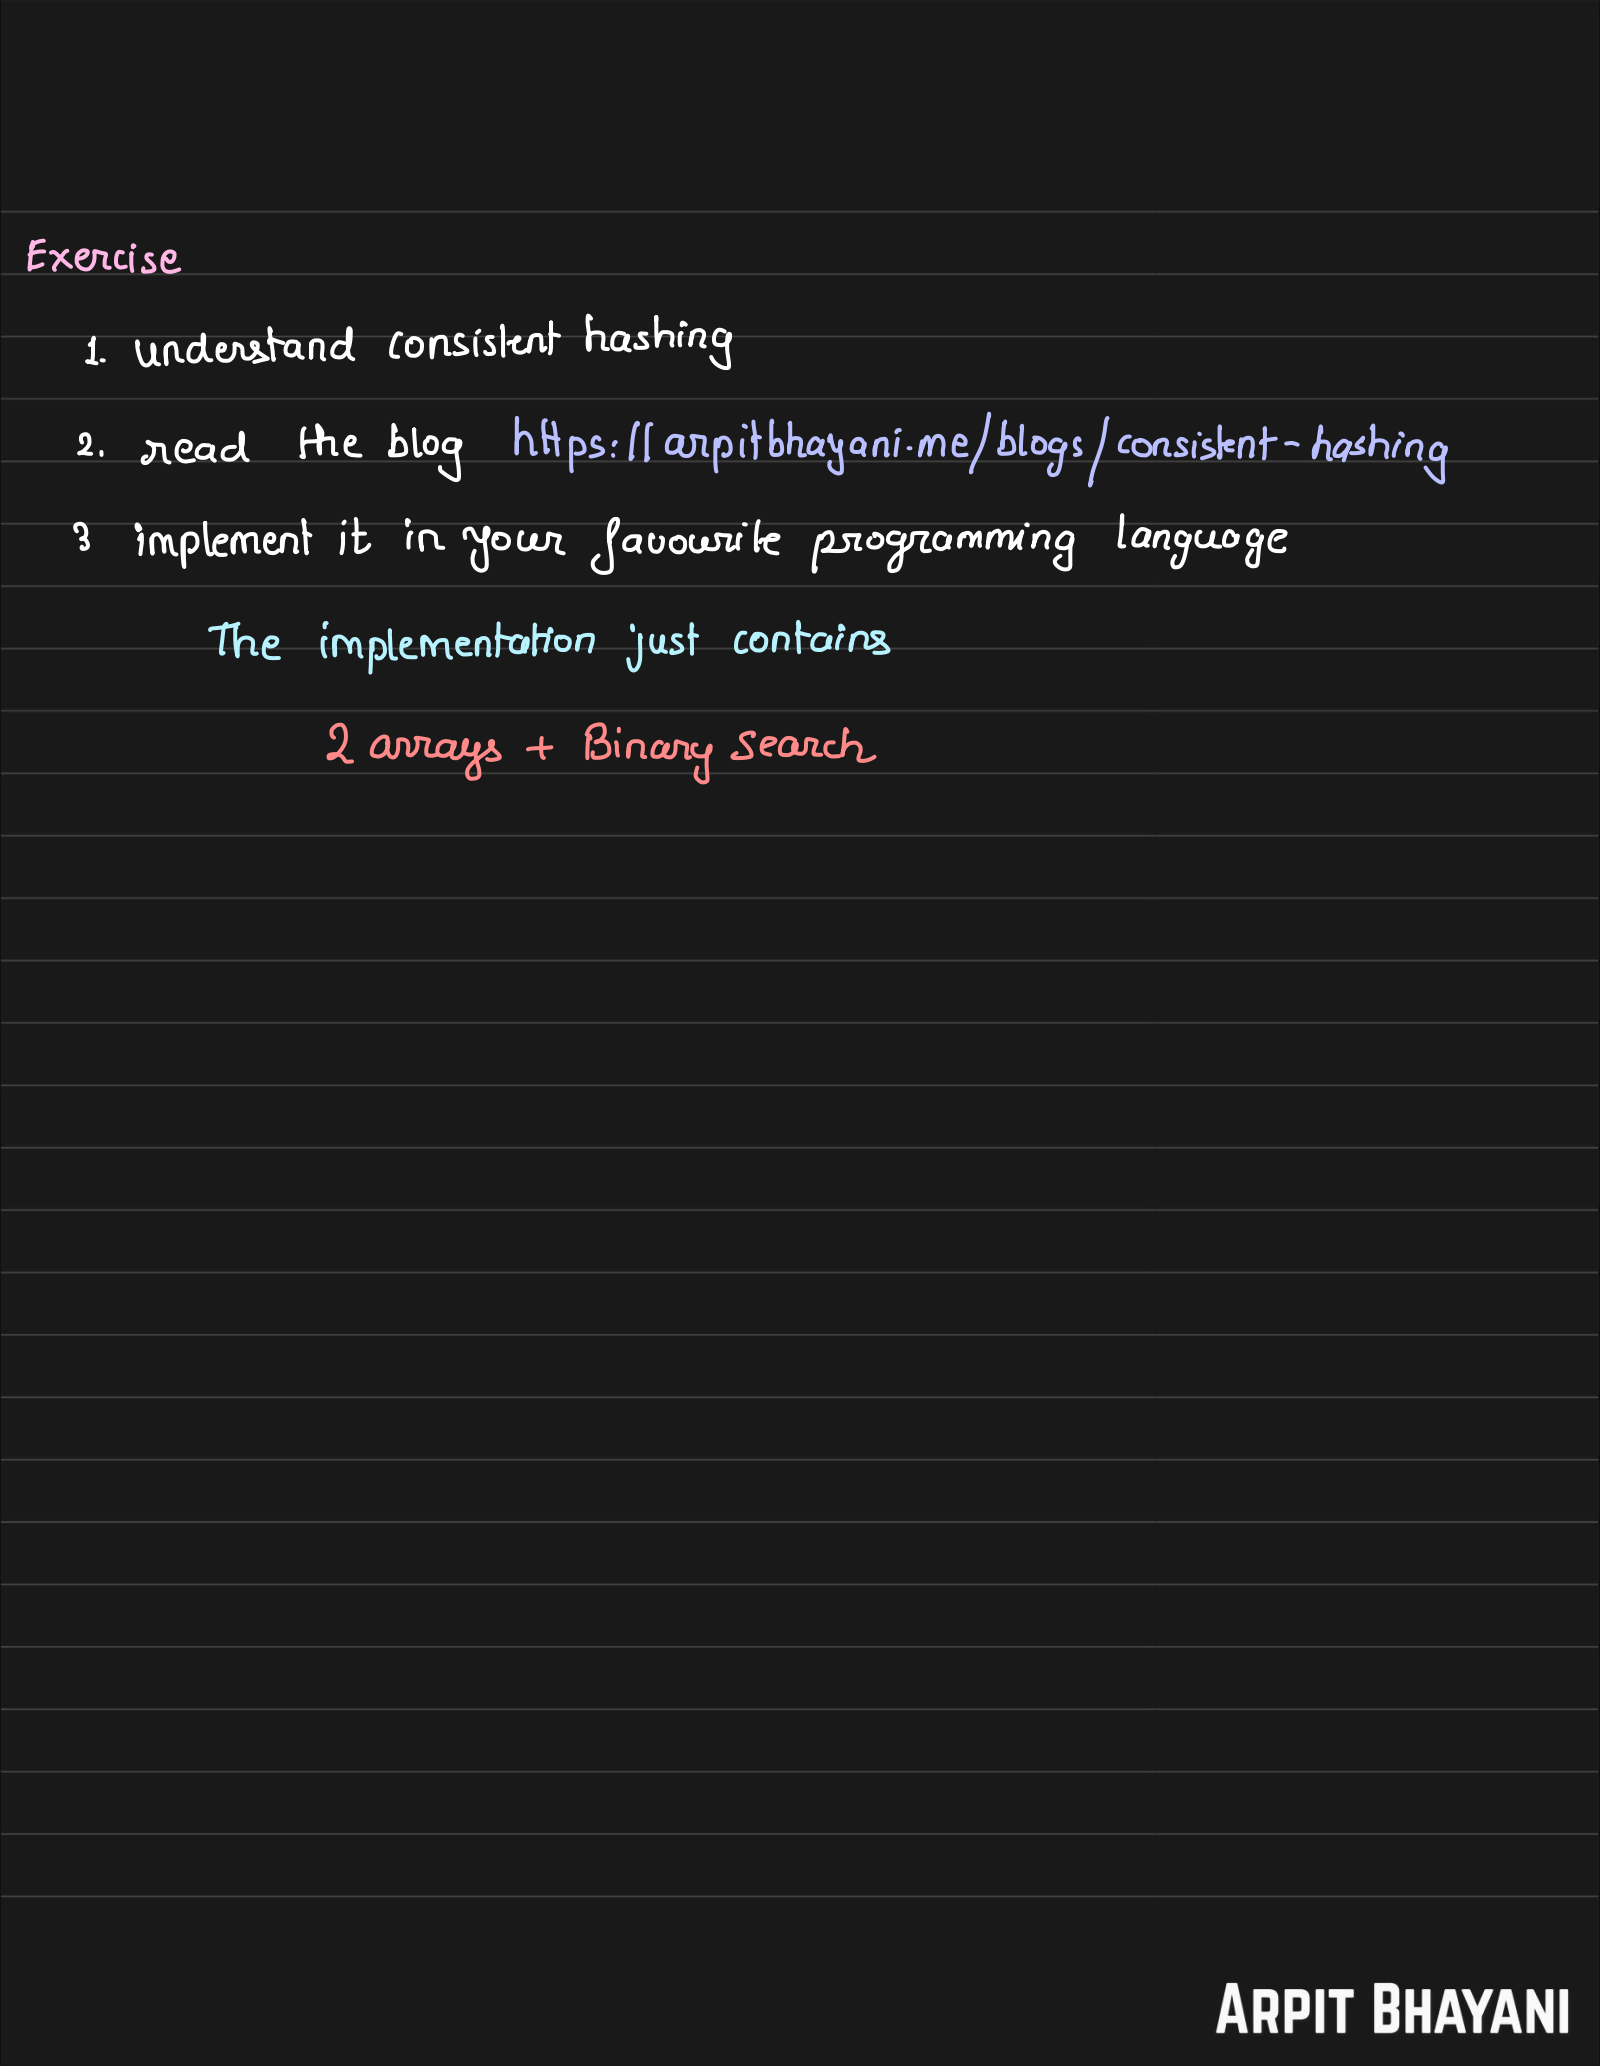 Exercise
1. understand consistent hashing
2. read the blog https://arpitbhayani.me/blogs/consistent-hashing
3 implement it in your favourite programming language
The implementation just contains
2 arrays + Binary search
ARPIT BHAYANI